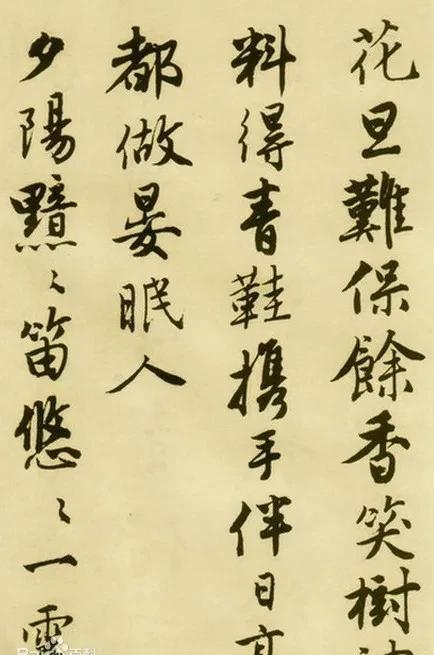 花旦難保餘香笑樹
料得青鞋携手伴日高
都做晏眠人
夕陽黯〻笛悠〻一
百科